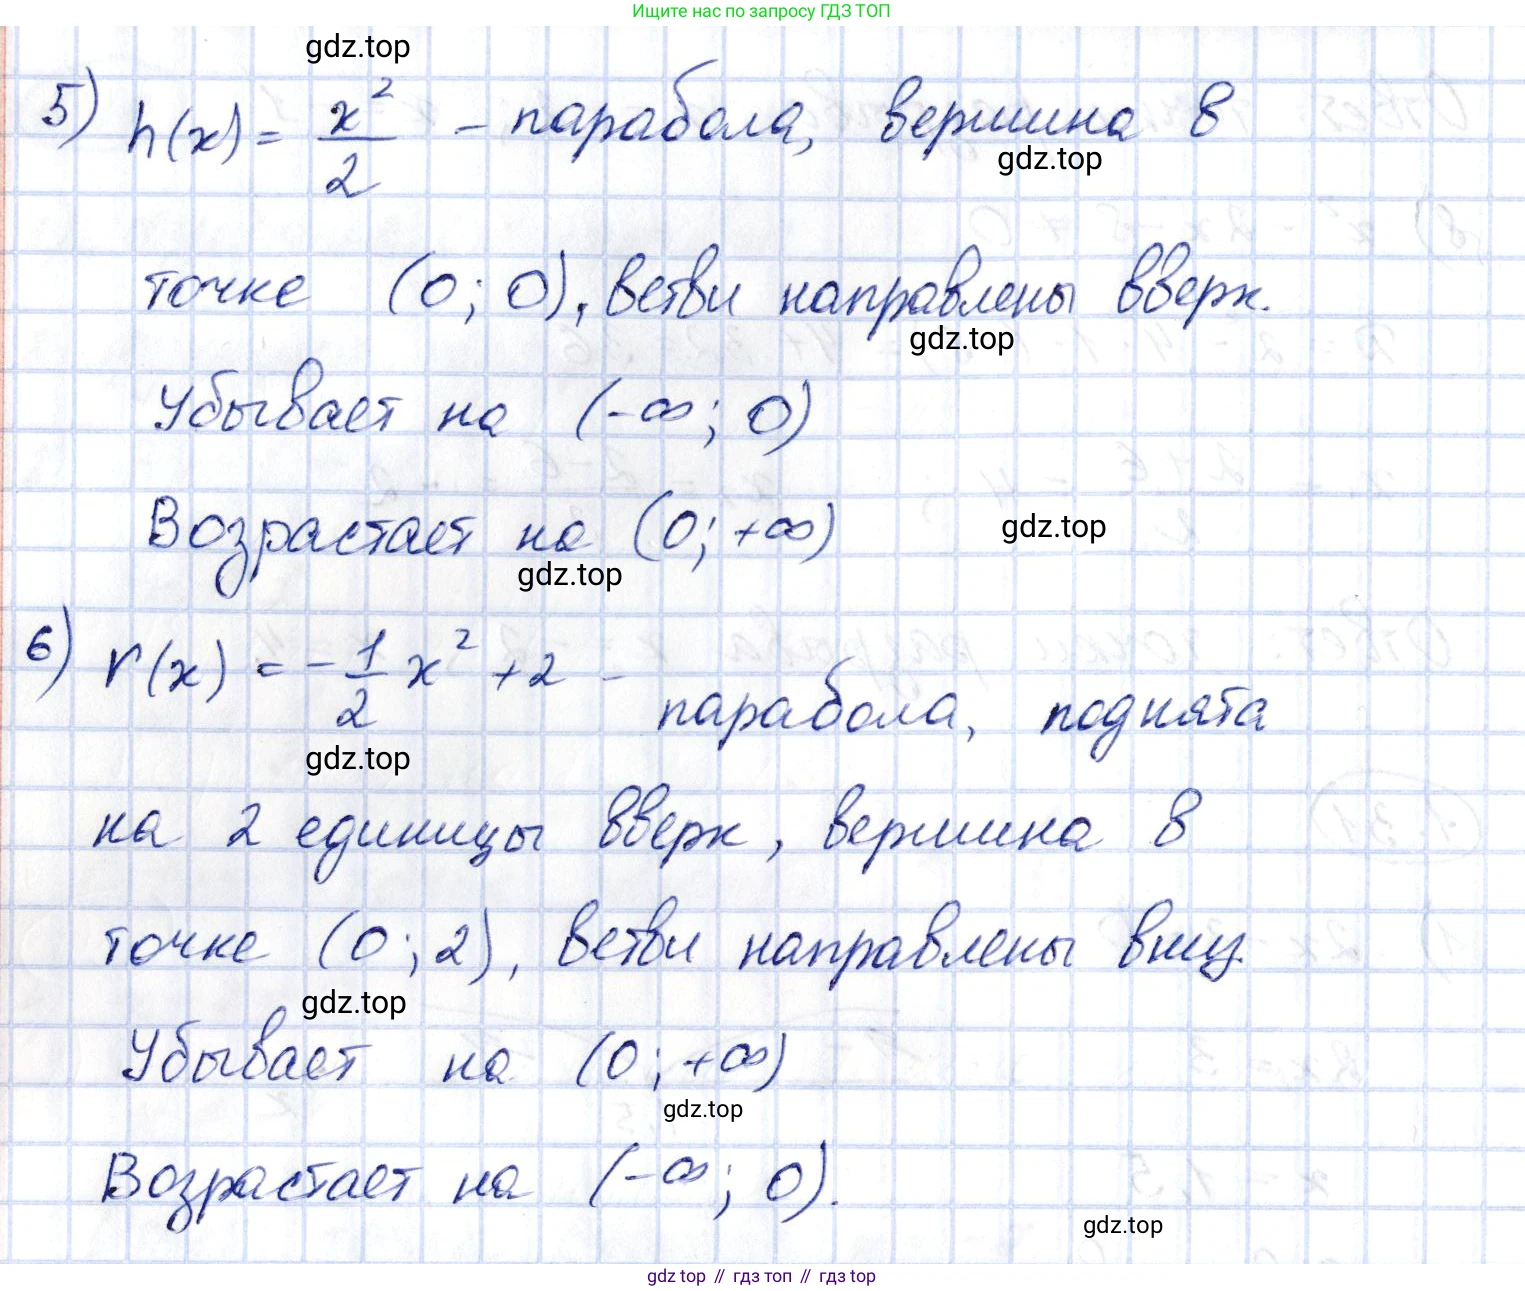 Ищите нас по запросу ГДЗ ТОП
gdz.top
5) h(x) = x²/2 – парабола, вершина в
gdz.top
точке (0; 0), ветви направлены вверх.
gdz.top
Убывает на (-∞; 0)
Возрастает на (0; +∞)
gdz.top
gdz.top
6) r(x) = -1/2 x² + 2 – парабола, поднята
gdz.top
на 2 единицы вверх, вершина в
точке (0; 2), ветви направлены вниз.
gdz.top
Убывает на (0; +∞)
gdz.top
Возрастает на (-∞; 0).
gdz.top
gdz top // гдз топ // гдз top